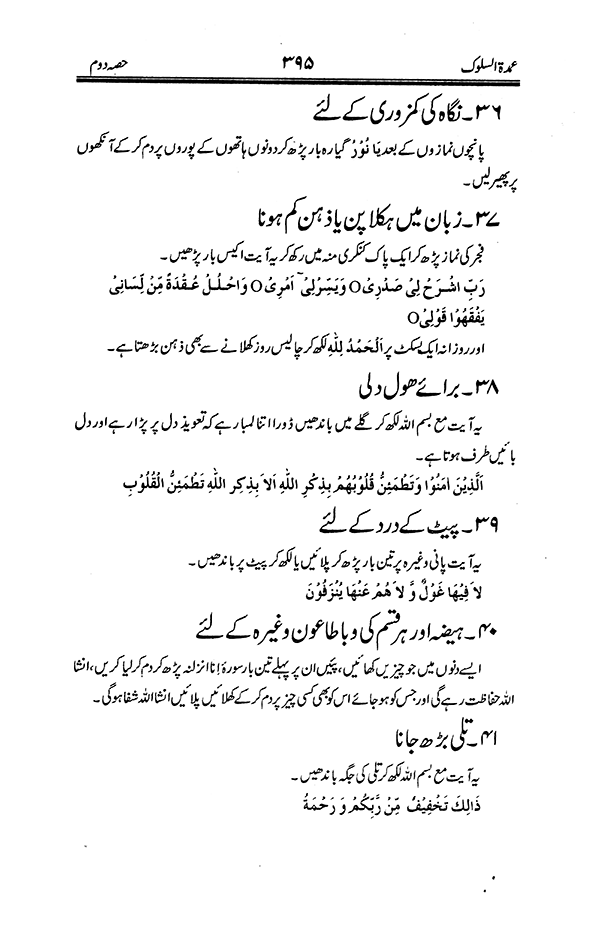 عمدۃ السلوک ۳۹۵ حصہ دوم
۳۶۔ نگاہ کی کمزوری کے لئے
پانچوں نمازوں کے بعد یَا نُوْرُ گیارہ بار پڑھ کر دونوں ہاتھوں کے پوروں پر دم کر کے آنکھوں
پر پھیر لیں۔
۳۷۔ زبان میں ہکلا پن یا ذہن کم ہونا
فجر کی نماز پڑھ کر ایک پاک کنکری منہ میں رکھ کر یہ آیت اکیس بار پڑھیں۔
رَبِّ اشْرَحْ لِیْ صَدْرِیْ○ وَیَسِّرْلِیْ اَمْرِیْ○ وَاحْلُلْ عُقْدَۃً مِّنْ لِّسَانِیْ
یَفْقَهُوْا قَوْلِیْ○
اور روزانہ ایک بسکٹ پر اَلْحَمْدُ لِلّٰهِ لکھ کر چالیس روز کھلانے سے بھی ذہن بڑھتا ہے۔
۳۸۔ برائے ھول دلی
یہ آیت مع بسم اللہ لکھ کر گلے میں باندھیں ڈورا اتنا لمبا رہے کہ تعویذ دل پر پڑا رہے اور دل
بائیں طرف ہوتا ہے۔
اَلَّذِیْنَ اٰمَنُوْا وَتَطْمَئِنُّ قُلُوْبُهُمْ بِذِکْرِ اللّٰهِ اَلاَ بِذِکِرِ اللّٰهِ تَطْمَئِنُّ الْقُلُوْبِ
۳۹۔ پیٹ کے درد کے لئے
یہ آیت پانی وغیرہ پر تین بار پڑھ کر پلائیں یا لکھ کر پیٹ پر باندھیں۔
لاَ فِیْهَا غَوْلٌ وَّ لاَ هُمْ عَنْهَا یُنْزَفُوْنَ
۴۰۔ ہیضہ اور ہر قسم کی وبا طاعون وغیرہ کے لئے
ایسے دنوں میں جو چیزیں کھائیں، پئیں ان پر پہلے تین بار سورۂ اِنا انزلنہ پڑھ کر دم کر لیا کریں، انشا
اللہ حفاظت رہے گی اور جس کو ہو جائے اس کو بھی کسی چیز پر دم کر کے کھلائیں پلائیں انشا اللہ شفا ہوگی۔
۴۱۔ تلی بڑھ جانا
یہ آیت مع بسم اللہ لکھ کر تلی کی جگہ باندھیں۔
ذَالِكَ تَخْفِیْفٌ مِّنْ رَّبِّکُمْ وَ رَحْمَةُ